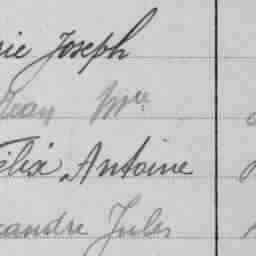 rie Joseph
Jean Mce
élix Antoine
xandre Jules